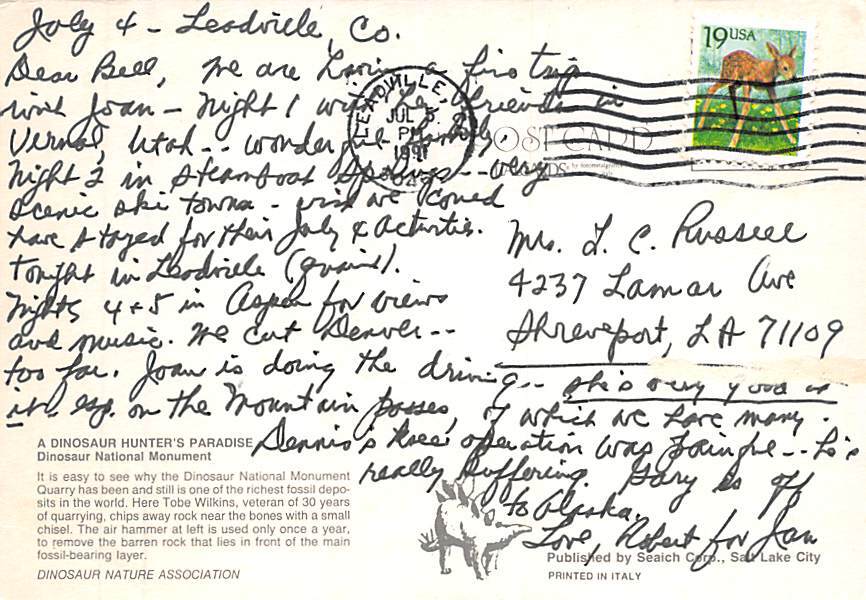 July 4 - Leadville, Co.
Dear Bell, We are having a fine trip
with Joan - Night 1 was her friends in
Vernal, Utah -- wonderful family.
Night 2 in Steamboat Springs -- very
scenic ski towns - wish we could
have stayed for their July 4 activities.
Tonight in Leadville (quaint).
Nights 4 + 5 in Aspen for views
and music. We cut Denver --
too far. Joan is doing the driving -- she's very good at
it - esp. on the mountain passes, of which we have many.
Dennis's knee operation was painful -- he's
really suffering. Gary is off
to Alaska.
Love, Robert for Jan
19 USA
LEADVILLE,
JUL 5
PM
1991
POST CARD
Mrs. L. C. Russell
4237 Lamar Ave
Shreveport, LA 71109
A DINOSAUR HUNTER'S PARADISE
Dinosaur National Monument
It is easy to see why the Dinosaur National Monument
Quarry has been and still is one of the richest fossil depo-
sits in the world. Here Tobe Wilkins, veteran of 30 years
of quarrying, chips away rock near the bones with a small
chisel. The air hammer at left is used only once a year,
to remove the barren rock that lies in front of the main
fossil-bearing layer.
DINOSAUR NATURE ASSOCIATION
Published by Seaich Corp., Salt Lake City
PRINTED IN ITALY